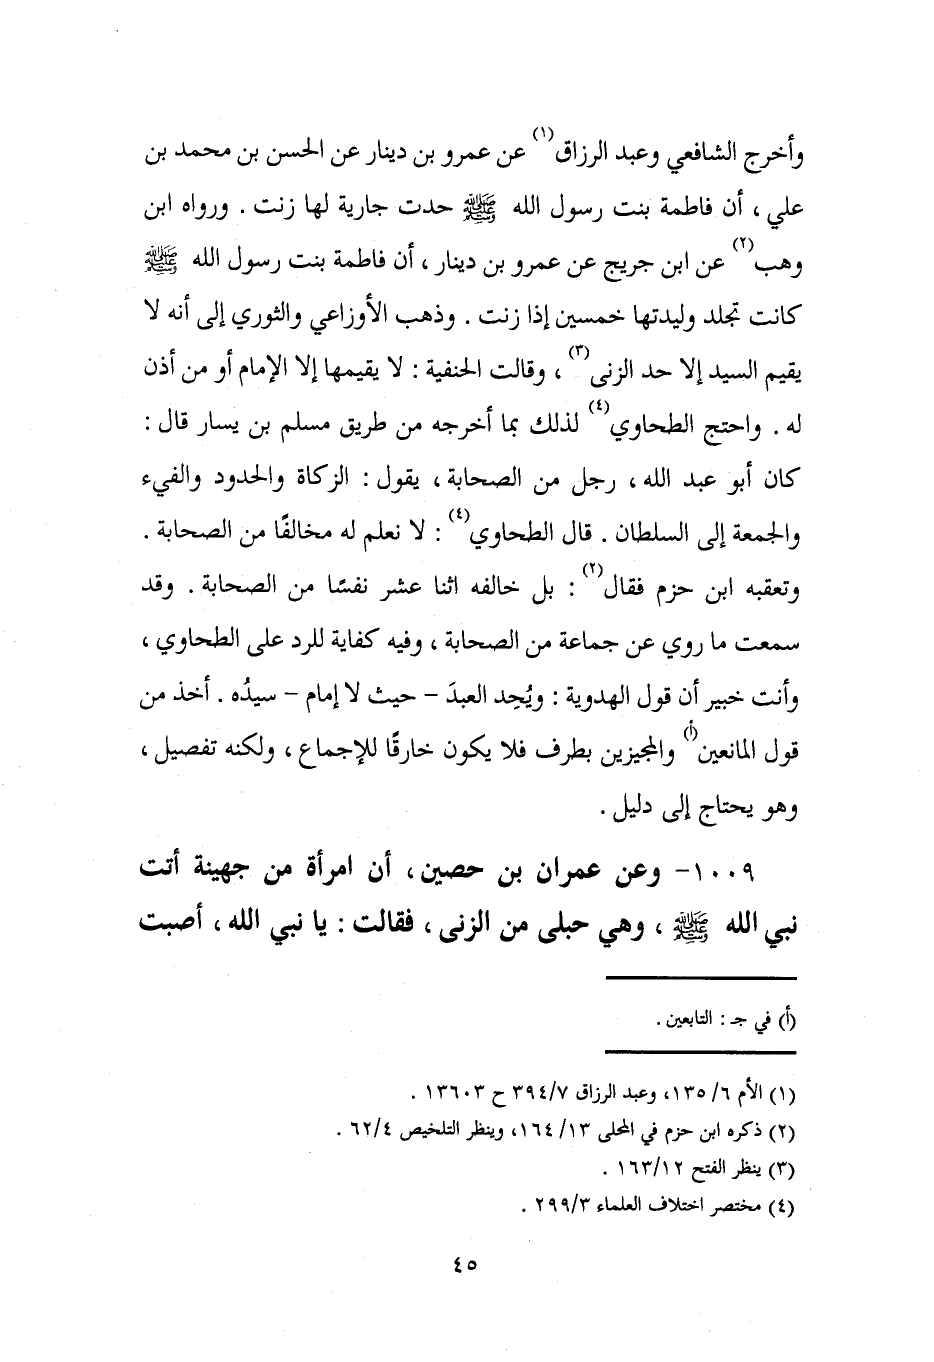 وأخرج الشافعي وعبد الرزاق(١) عن عمرو بن دينار عن الحسن بن محمد بن
علي ، أن فاطمة بنت رسول الله ﷺ حدت جارية لها زنت . ورواه ابن
وهب(٢) عن ابن جريج عن عمرو بن دينار ، أن فاطمة بنت رسول الله ﷺ
كانت تجلد وليدتها خمسين إذا زنت . وذهب الأوزاعي والثوري إلى أنه لا
يقيم السيد إلا حد الزنى(٣) ، وقالت الحنفية : لا يقيمها إلا الإمام أو من أذن
له . واحتج الطحاوي(٤) لذلك بما أخرجه من طريق مسلم بن يسار قال :
كان أبو عبد الله ، رجل من الصحابة ، يقول : الزكاة والحدود والفيء
والجمعة إلى السلطان . قال الطحاوي(٤) : لا نعلم له مخالفًا من الصحابة .
وتعقبه ابن حزم فقال(٢) : بل خالفه اثنا عشر نفسًا من الصحابة . وقد
سمعت ما روي عن جماعة من الصحابة ، وفيه كفاية للرد على الطحاوي ،
وأنت خبير أن قول الهدوية : ويُحِد العبدَ - حيث لا إمام - سيدُه . أخذ من
قول المانعين(أ) والمجيزين بطرف فلا يكون خارقًا للإجماع ، ولكنه تفصيل ،
وهو يحتاج إلى دليل .
١٠٠٩- وعن عمران بن حصين ، أن امرأة من جهينة أتت
نبي الله ﷺ ، وهي حبلى من الزنى ، فقالت : يا نبي الله ، أصبت
(أ) في جـ : التابعين .
(١) الأم ٦/ ١٣٥، وعبد الرزاق ٧/ ٣٩٤ ح ١٣٦٠٣ .
(٢) ذكره ابن حزم في المحلى ١٣/ ١٦٤، وينظر التلخيص ٤/ ٦٢ .
(٣) ينظر الفتح ١٢/ ١٦٣ .
(٤) مختصر اختلاف العلماء ٣/ ٢٩٩ .
٤٥